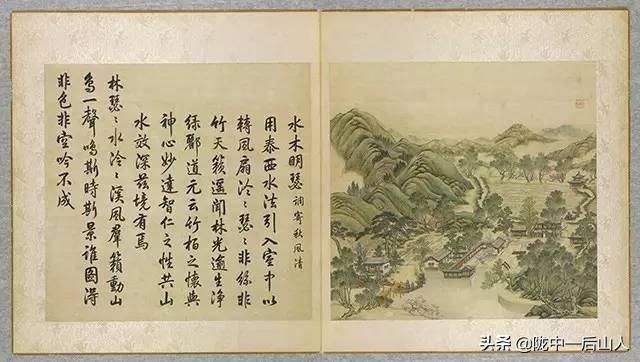 水木明瑟 調寄秋風清
用泰西水法引入室中以
轉風扇泠〻瑟〻非絲非
竹天籟遥聞林光逾生净
緑酈道元云竹柏之懷與
神心妙達智仁之性共山
水效深兹境有焉
林瑟〻水泠〻溪風羣籟動山
鳥一聲鳴斯時斯景誰圖得
非色非空吟不成
头条 @陇中一后山人